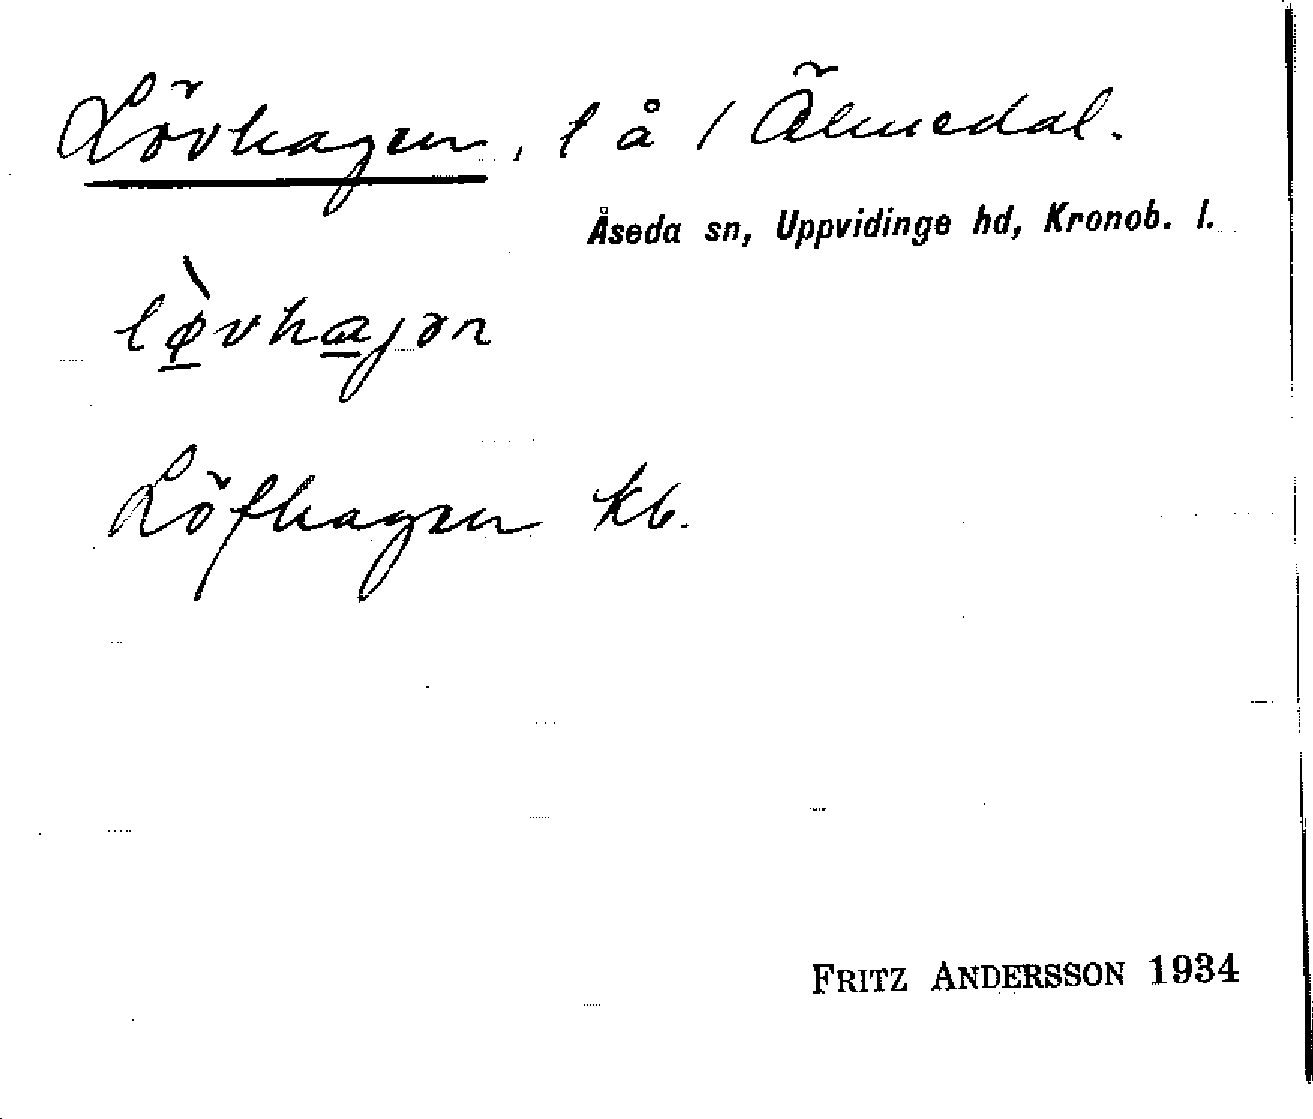 Lövhagen, l å / Älmedal.
Åseda sn, Uppvidinge hd, Kronob. l.
lø̀vhajən
Löfhagen kb.
FRITZ ANDERSSON 1934